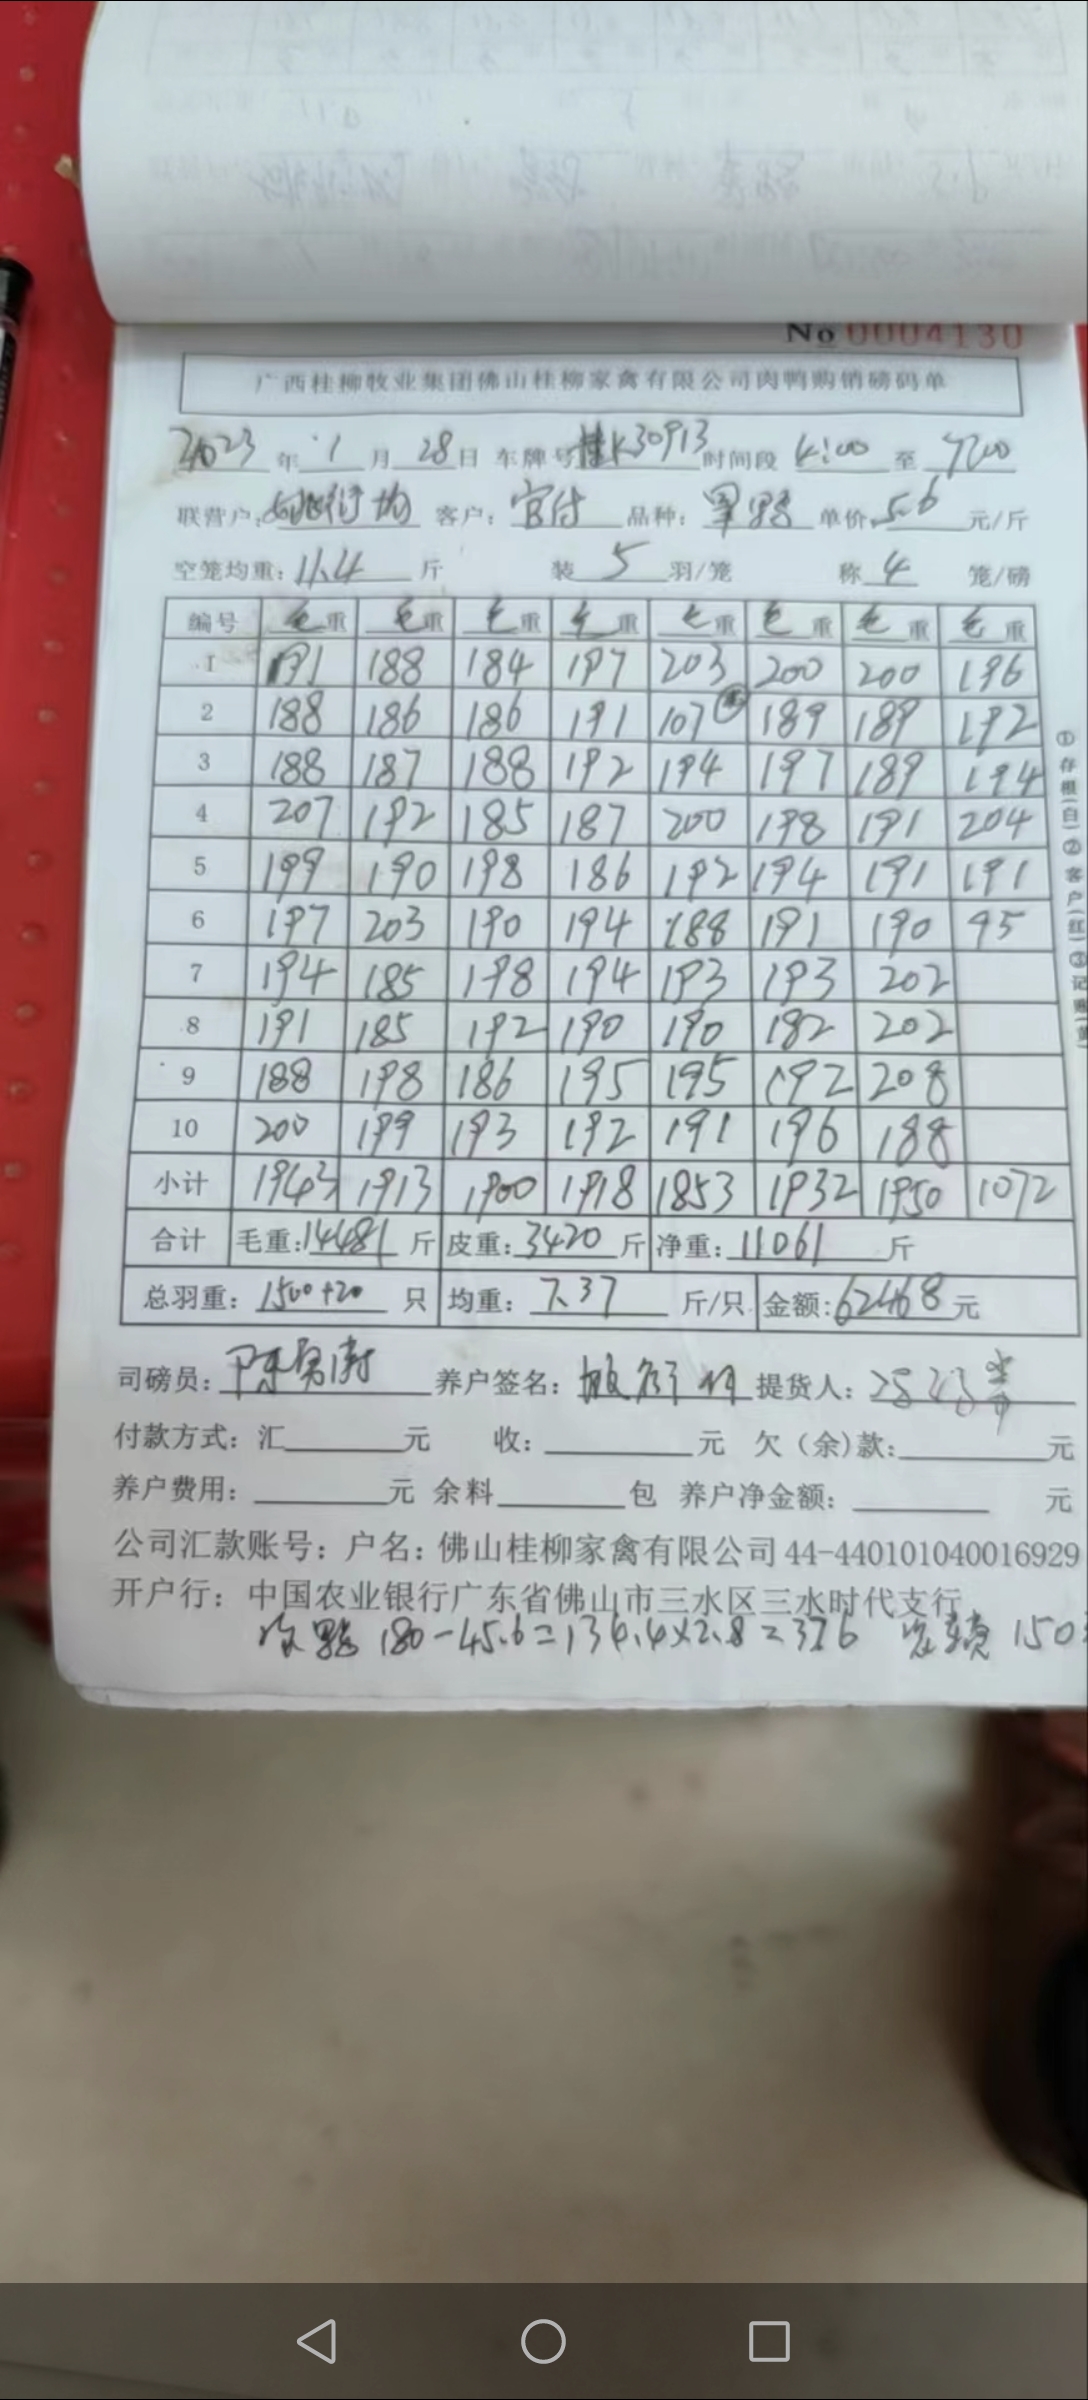 No 0004130
广西桂柳牧业集团佛山桂柳家禽有限公司肉鸭购销磅码单
2023 年 1 月 28 日 车牌号 桂K30913 时间段 4:00 至 7:00
联营户: 客户: 品种: 单价 5.6 元/斤
空笼均重: 11.4 斤 装 5 羽/笼 称 4 笼/磅
编号 毛重 毛重 毛重 毛重 毛重 毛重 毛重 毛重
1 191 188 184 197 203 200 200 196
2 188 186 186 191 107 189 189 192
3 188 187 188 192 194 197 189 194
4 207 192 185 187 200 198 191 204
5 199 190 198 186 192 194 191 191
6 197 203 190 194 188 191 190 95
7 194 185 198 194 193 193 202
8 191 185 192 190 190 182 202
9 188 198 186 195 195 192 208
10 200 199 193 192 191 196 188
小计 1943 1913 1900 1918 1853 1932 1950 1072
合计 毛重: 14481 斤 皮重: 3420 斤 净重: 11061 斤
总羽重: 1500+20 只 均重: 7.37 斤/只 金额: 62468 元
司磅员: 养户签名: 提货人:
付款方式: 汇 元 收: 元 欠(余)款: 元
养户费用: 元 余料 包 养户净金额: 元
公司汇款账号: 户名: 佛山桂柳家禽有限公司 44-440101040016929
开户行: 中国农业银行广东省佛山市三水区三水时代支行
180-45.6=134.4×2.8=376 150
①存根(白)②客户(红)③记账(黄)